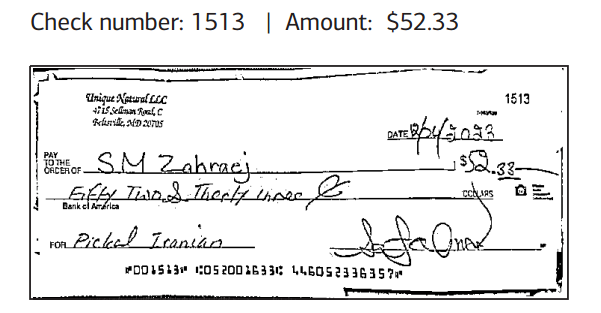 Check number: 1513 | Amount: $52.33
Unique Natural LLC
4715 Sellman Road, C
Beltsville, MD 20705
1513
DATE 2/04/2023
PAY TO THE ORDER OF S.M Zahraej $52.33
Fifty Two & Therty three DOLLARS
Bank of America
FOR Pickel Iranian
⑈001513⑈ ⑆052001633⑆ 446052336357⑈